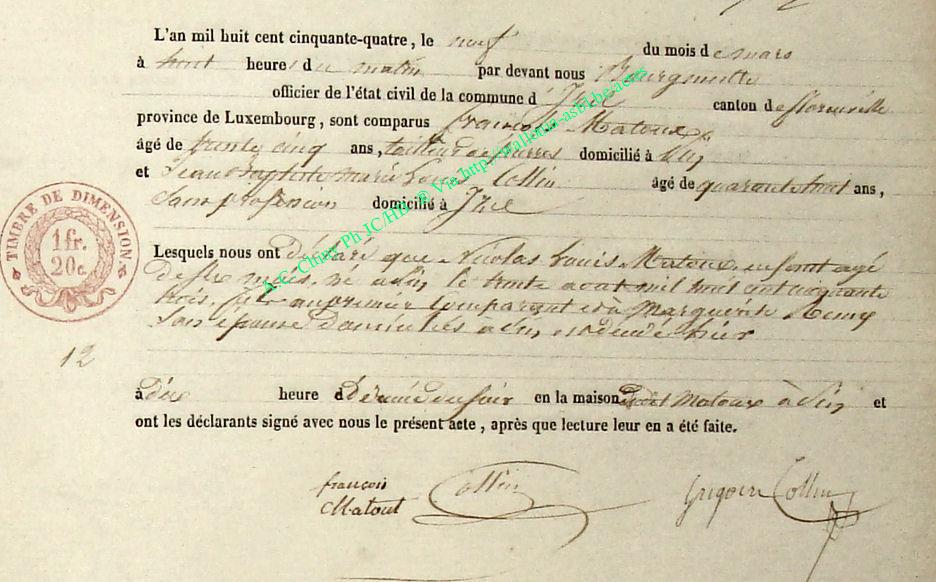 L'an mil huit cent cinquante-quatre, le neuf du mois de mars
à huit heures du matin par devant nous Bourgmestre
officier de l'état civil de la commune d'Izel canton de florenville
province de Luxembourg, sont comparus françois Matoux
âgé de trente cinq ans, tailleur de pierres domicilié à
et Jean Baptiste Marie Louis Collin âgé de quarante huit ans,
Sans profession domicilié à Izel
Lesquels nous ont déclaré que Nicolas Louis Matoux, enfant agé
de six mois, né le trente aout mil huit cent cinquante
trois, fils du premier comparant et à Marguerite Remy
Son épouse domiciliés à est décédé hier
à dix heure et demie du soir en la maison dudit Matoux à et
ont les déclarants signé avec nous le présent acte, après que lecture leur en a été faite.
françois Collin Grégoire Collin
Matout
TIMBRE DE DIMENSION
1 fr.
20 c.
12
A.C. Chiny Ph JC/HB ® Via http://wallonia-asbl.be/actes